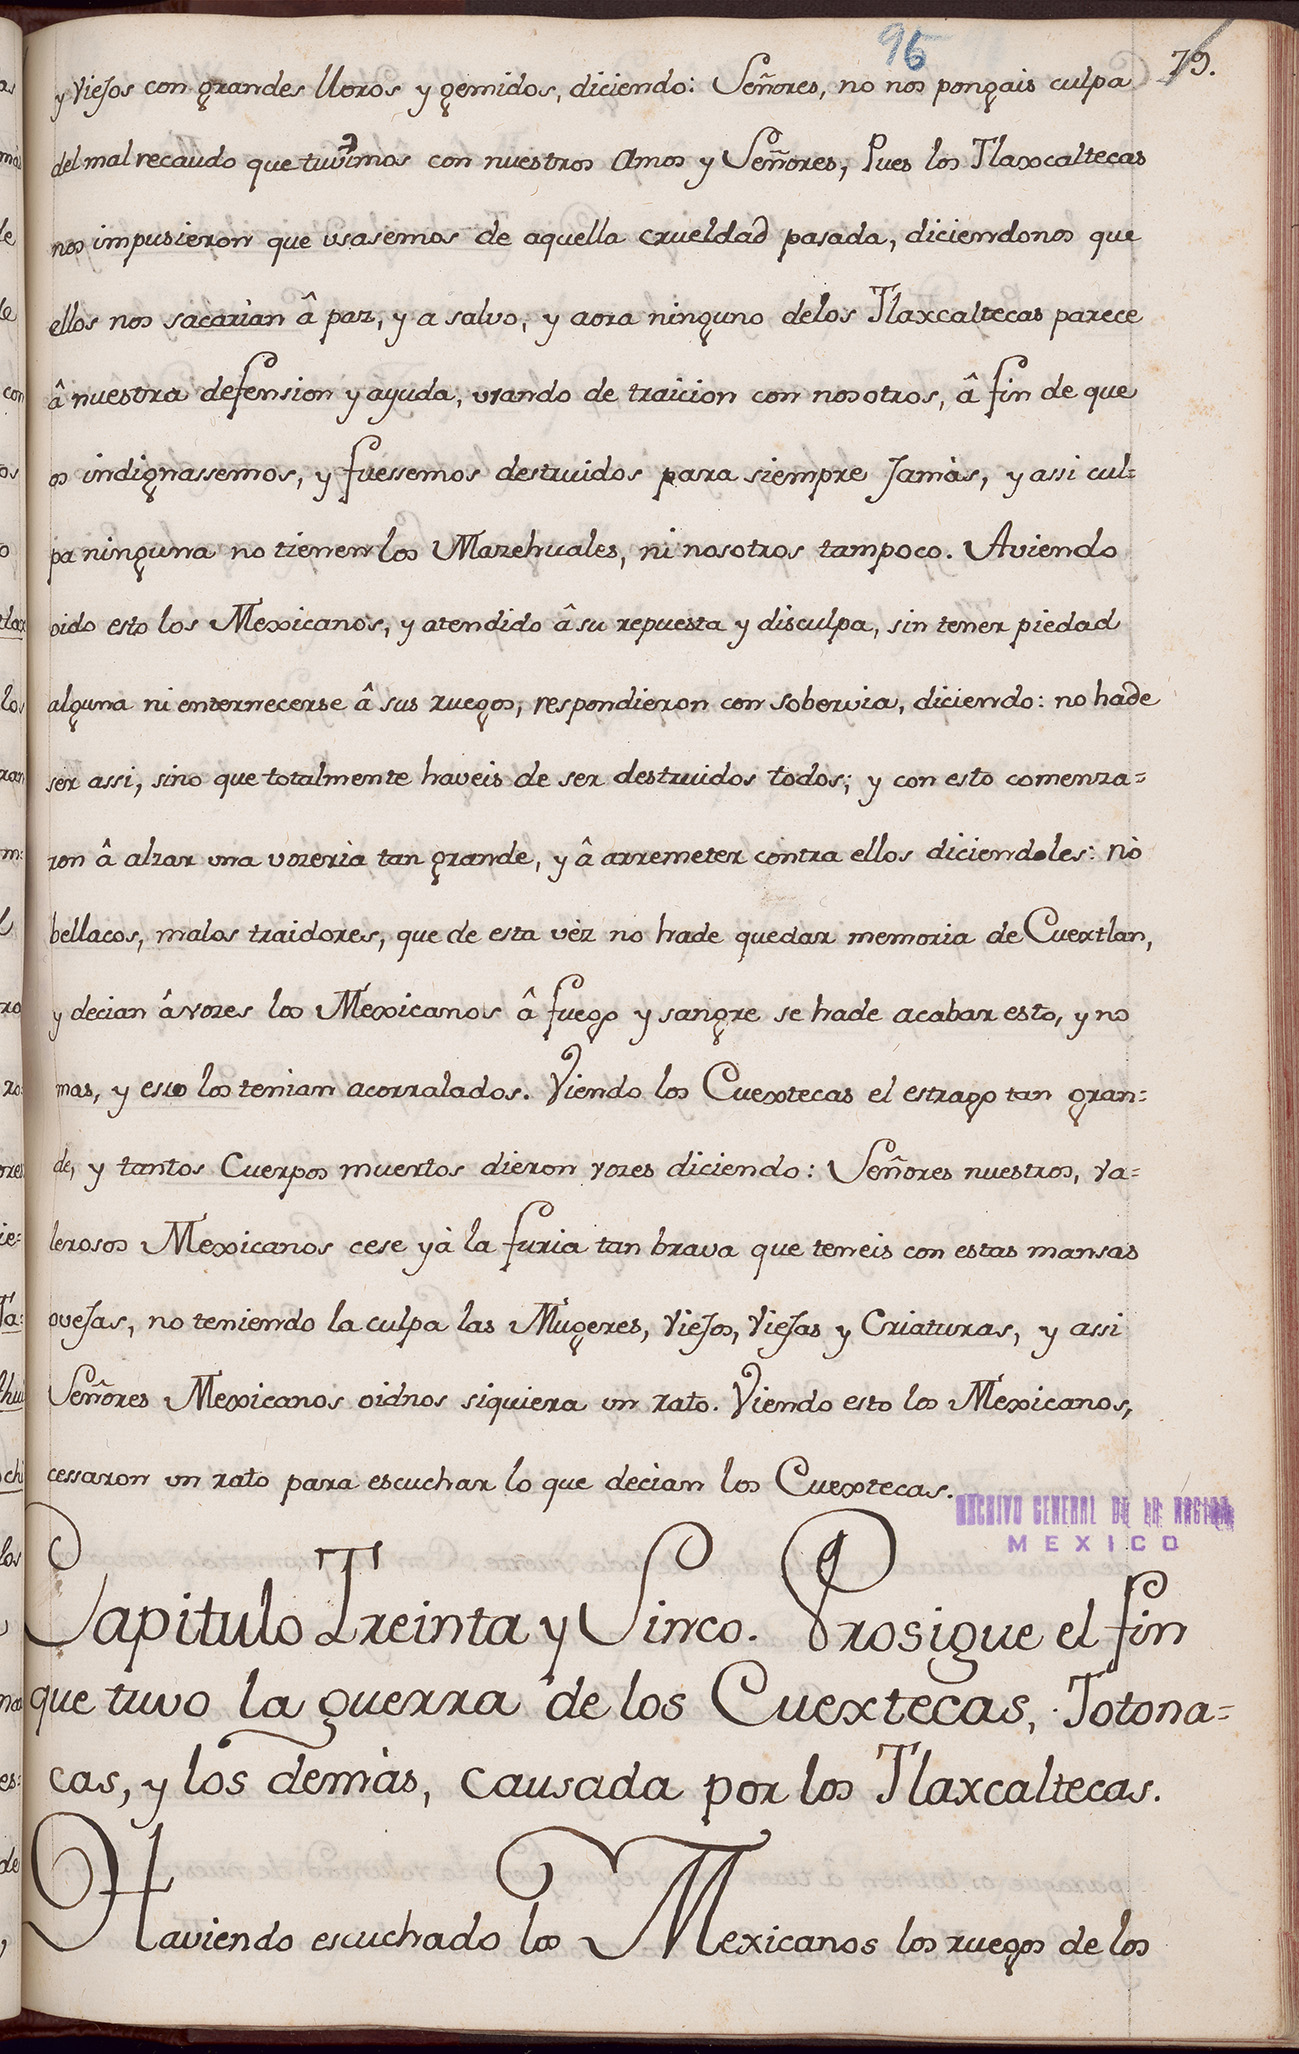 96
79.
y Viejos con grandes lloros y gemidos, diciendo: Señores, no nos pongais culpa
del mal recaudo que tuvimos con nuestros Amos y Señores, Pues los Tlaxcaltecas
nos impusieron que usasemos de aquella crueldad pasada, diciendonos que
ellos nos sacarian â paz, y a salvo, y aora ninguno delos Tlaxcaltecas parece
â nuestra defension y ayuda, usando de traicion con nosotros, â fin de que
os indignassemos, y fuessemos destruidos para siempre Jamàs, y assi cul=
pa ninguna no tienen los Mazehuales, ni nosotros tampoco. Aviendo
oido esto los Mexicanos, y atendido â su repuesta y disculpa, sin tener piedad
alguna ni enternecerse â sus ruegos, respondieron con sobervia, diciendo: no hade
ser assi, sino que totalmente haveis de ser destruidos todos; y con esto comenza=
ron â alzar una vozeria tan grande, y â arremeter contra ellos diciendoles: nò
bellacos, malos traidores, que de esta vèz no hade quedar memoria de Cuextlan,
y decian âvozes los Mexicanos â fuego y sangre se hade acabar esto, y no
mas, y esto los tenian acorralados. Viendo los Cuextecas el estrago tan gran=
de, y tantos Cuerpos muertos dieron vozes diciendo: Señores nuestros, va=
lerosos Mexicanos cese yà la furia tan brava que teneis con estas mansas
ovejas, no teniendo la culpa las Mugeres, Viejos, Viejas y Criaturas, y assi
Señores Mexicanos oidnos siquiera un rato. Viendo esto los Mexicanos,
cessaron un rato para escuchar lo que decian los Cuextecas.
ARCHIVO GENERAL DE LA NACION
MEXICO
Capitulo Treinta y Sinco. Prosigue el fin
que tuvo la guerra de los Cuextecas, Totona=
cas, y los demàs, causada por los Tlaxcaltecas.
Haviendo escuchado los Mexicanos los ruegos de los